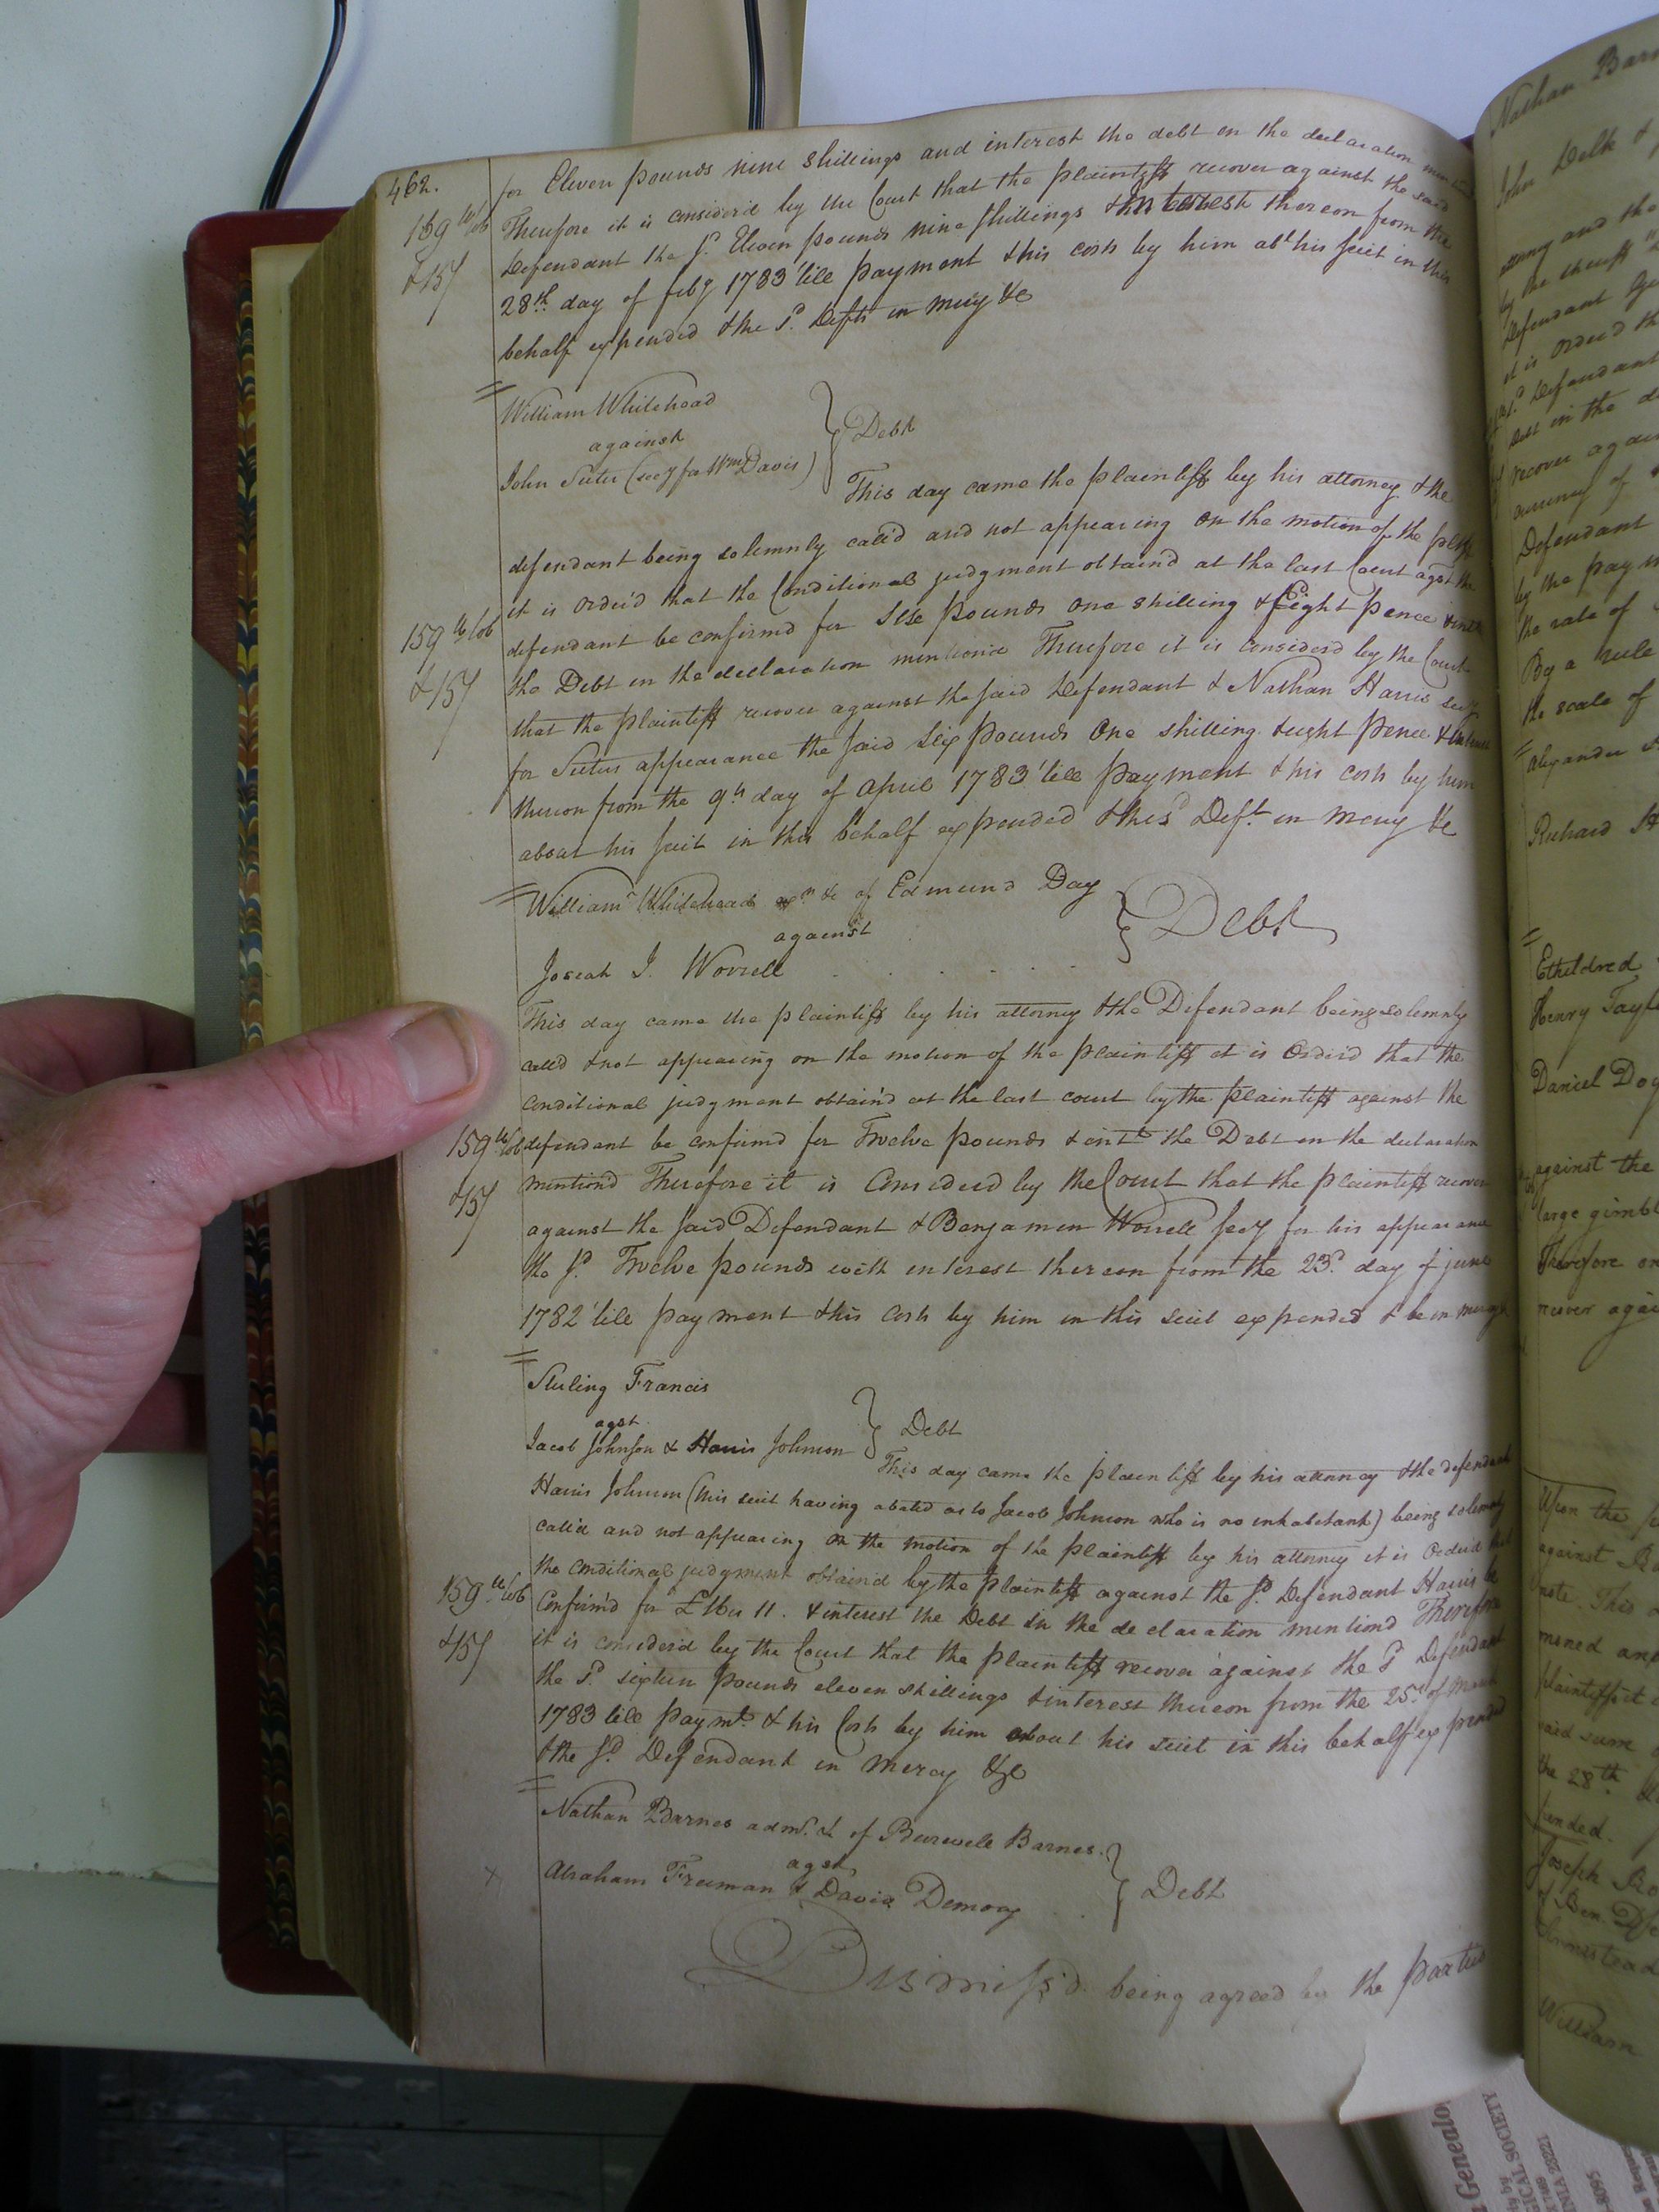 462.
for Eleven pounds nine shillings and interest the debt in the declaration
Therefore it is considerd by the Court that the plaintiff recover against the said
159 lb tob
Defendant the sd. Eleven pounds nine shillings & interest thereon from the
&15/
28th. day of feby 1783 'till payment & his costs by him abt his suit in this
behalf expended & the sd. Defts in mercy &c
William Whitehead
against
Debt
John Suter (secy for Wm Davis)
This day came the plaintiff by his attorney & the
defendant being solemnly call'd and not appearing on the motion of the pltff
it is order'd that the Conditional judgment obtain'd at the last Court agst the
159 lb tob
defendant be confirmd for Six pounds one shilling & Eight pence & int
&15/
the Debt in the declaration mention'd Therefore it is considerd by the Court
that the plaintiff recover against the said Defendant & Nathan Harris secy
for Suters appearance the said Six pounds One shilling & eight pence & interest
thereon from the 9th day of April 1783 'till payment & his costs by him
about his suit in this behalf expended & the sd Deft. in mercy &c
William Whitehead exr &c of Edmund Day
against
Debt
Josiah J. Worrell
This day came the plaintiff by his attorney & the Defendant being solemnly
call'd & not appearing on the motion of the plaintiff it is Order'd that the
Conditional judgment obtain'd at the last court by the plaintiff against the
159 lb tob
defendant be confirmd for Twelve pounds & int the Debt in the declaration
&15/
mention'd Therefore it is Considerd by the Court that the plaintiff recover
against the said Defendant & Benjamin Worrell secy for his appearance
the sd. Twelve pounds with interest thereon from the 23d. day of june
1782 'till payment & his costs by him in this suit expended & be in mercy
Sterling Francis
agst
Debt
Jacob Johnson & Harris Johnson
This day came the plaintiff by his attorney & the defendant
Harris Johnson (this suit having abated as to Jacob Johnson who is no inhabitant) being solemnly
call'd and not appearing on the motion of the plaintiff by his attorney it is Order'd that
the conditional judgment obtain'd by the plaintiff against the sd. Defendant Harris be
159 lb tob
Confirm'd for £16.. 11. & interest the Debt in the declaration mentiond Therefore
&15/
it is considerd by the Court that the plaintiff recover against the sd Defendant
the sd. sixteen pounds eleven shillings & interest thereon from the 25th of March
1783 till paymt. & his Costs by him about his suit in this behalf expended
& the sd. Defendant in mercy &c
Nathan Barnes admr. &c of Burwell Barnes.
agst
Debt
Abraham Freeman & David Demory
Dismiss'd being agreed by the parties
Nathan Barn
John Delk &
attorney and the
by the sheriff
Defendant
it is Order'd th
sd. Defendant
Debt in the d
recover again
currency of
Defendant
by the paym
the rate of
By a rule
the scale of
Alexander
Richard H
Etheldred
Henry Tayl
Daniel Doy
against the
large gimbl
Therefore
recover agai
Upon the
against B
note. This
moned an
plaintiff it
said sum
the 28th
pended.
Joseph Bo
of Ben.
William
Genealo
ICAL SOCIETY